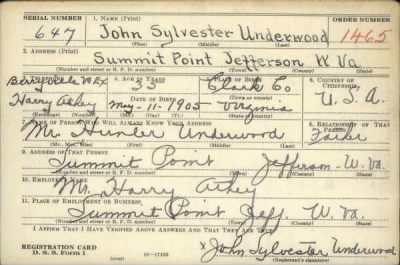 SERIAL NUMBER 1. NAME (Print) ORDER NUMBER
647 John Sylvester Underwood 1465
(First) (Middle) (Last)
2. ADDRESS (Print)
Summit Point Jefferson W Va
(Number and street or R. F. D. number) (Town) (County) (State)
4. AGE IN YEARS PLACE OF BIRTH 6. COUNTRY OF CITIZENSHIP
Berryville Ex 35 Clark Co
Harry Athey DATE OF BIRTH U.S.A.
May-11-1905 Virginia
(Exchange) (Number) (Mo.) (Day) (Yr.) (State or country)
7. NAME OF PERSON WHO WILL ALWAYS KNOW YOUR ADDRESS 8. RELATIONSHIP OF THAT PERSON
Mr. Hunter Underwood Father
(Mr., Mrs., Miss) (First) (Middle) (Last)
9. ADDRESS OF THAT PERSON
Summit Point Jefferson W. Va.
(Number and street or R. F. D. number) (Town) (County) (State)
10. EMPLOYER'S NAME
Mr. Harry Athey
11. PLACE OF EMPLOYMENT OR BUSINESS
Summit Point Jeff. W. Va.
(Number and street or R. F. D. number) (Town) (County) (State)
I AFFIRM THAT I HAVE VERIFIED ABOVE ANSWERS AND THAT THEY ARE TRUE.
REGISTRATION CARD
D. S. S. Form 1 (over) x John Sylvester Underwood
(Registrant's signature)